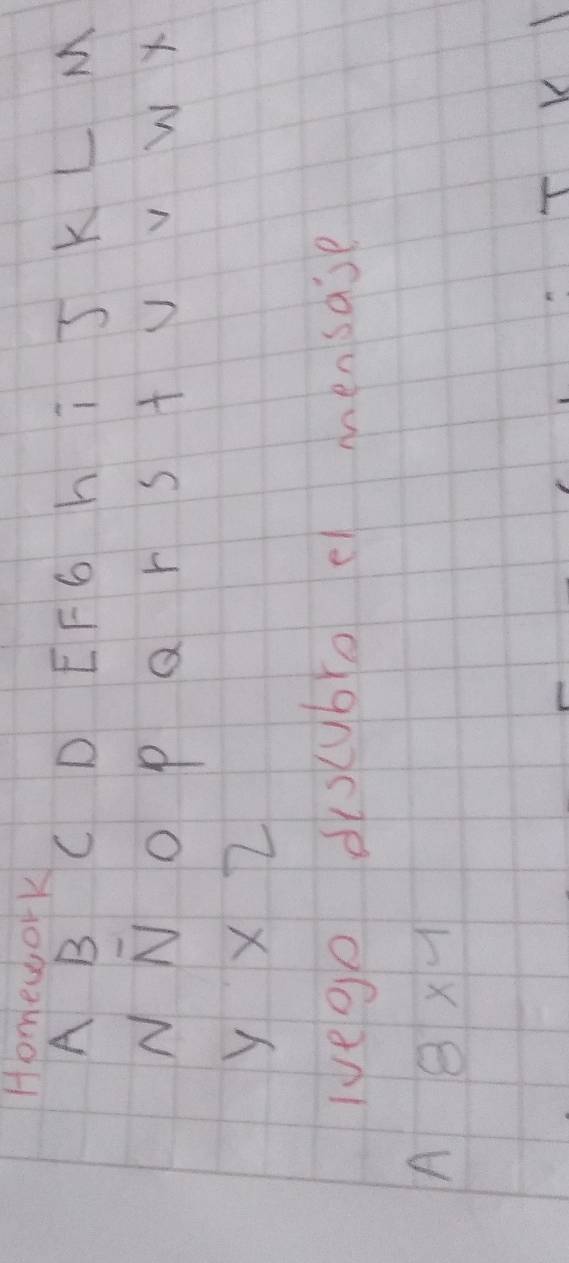 Homework
A B C D E F G h i J K L M
N Ñ O P Q r s t U V W X
Y X Z
luego descubro el mensaje
A 8 x 4